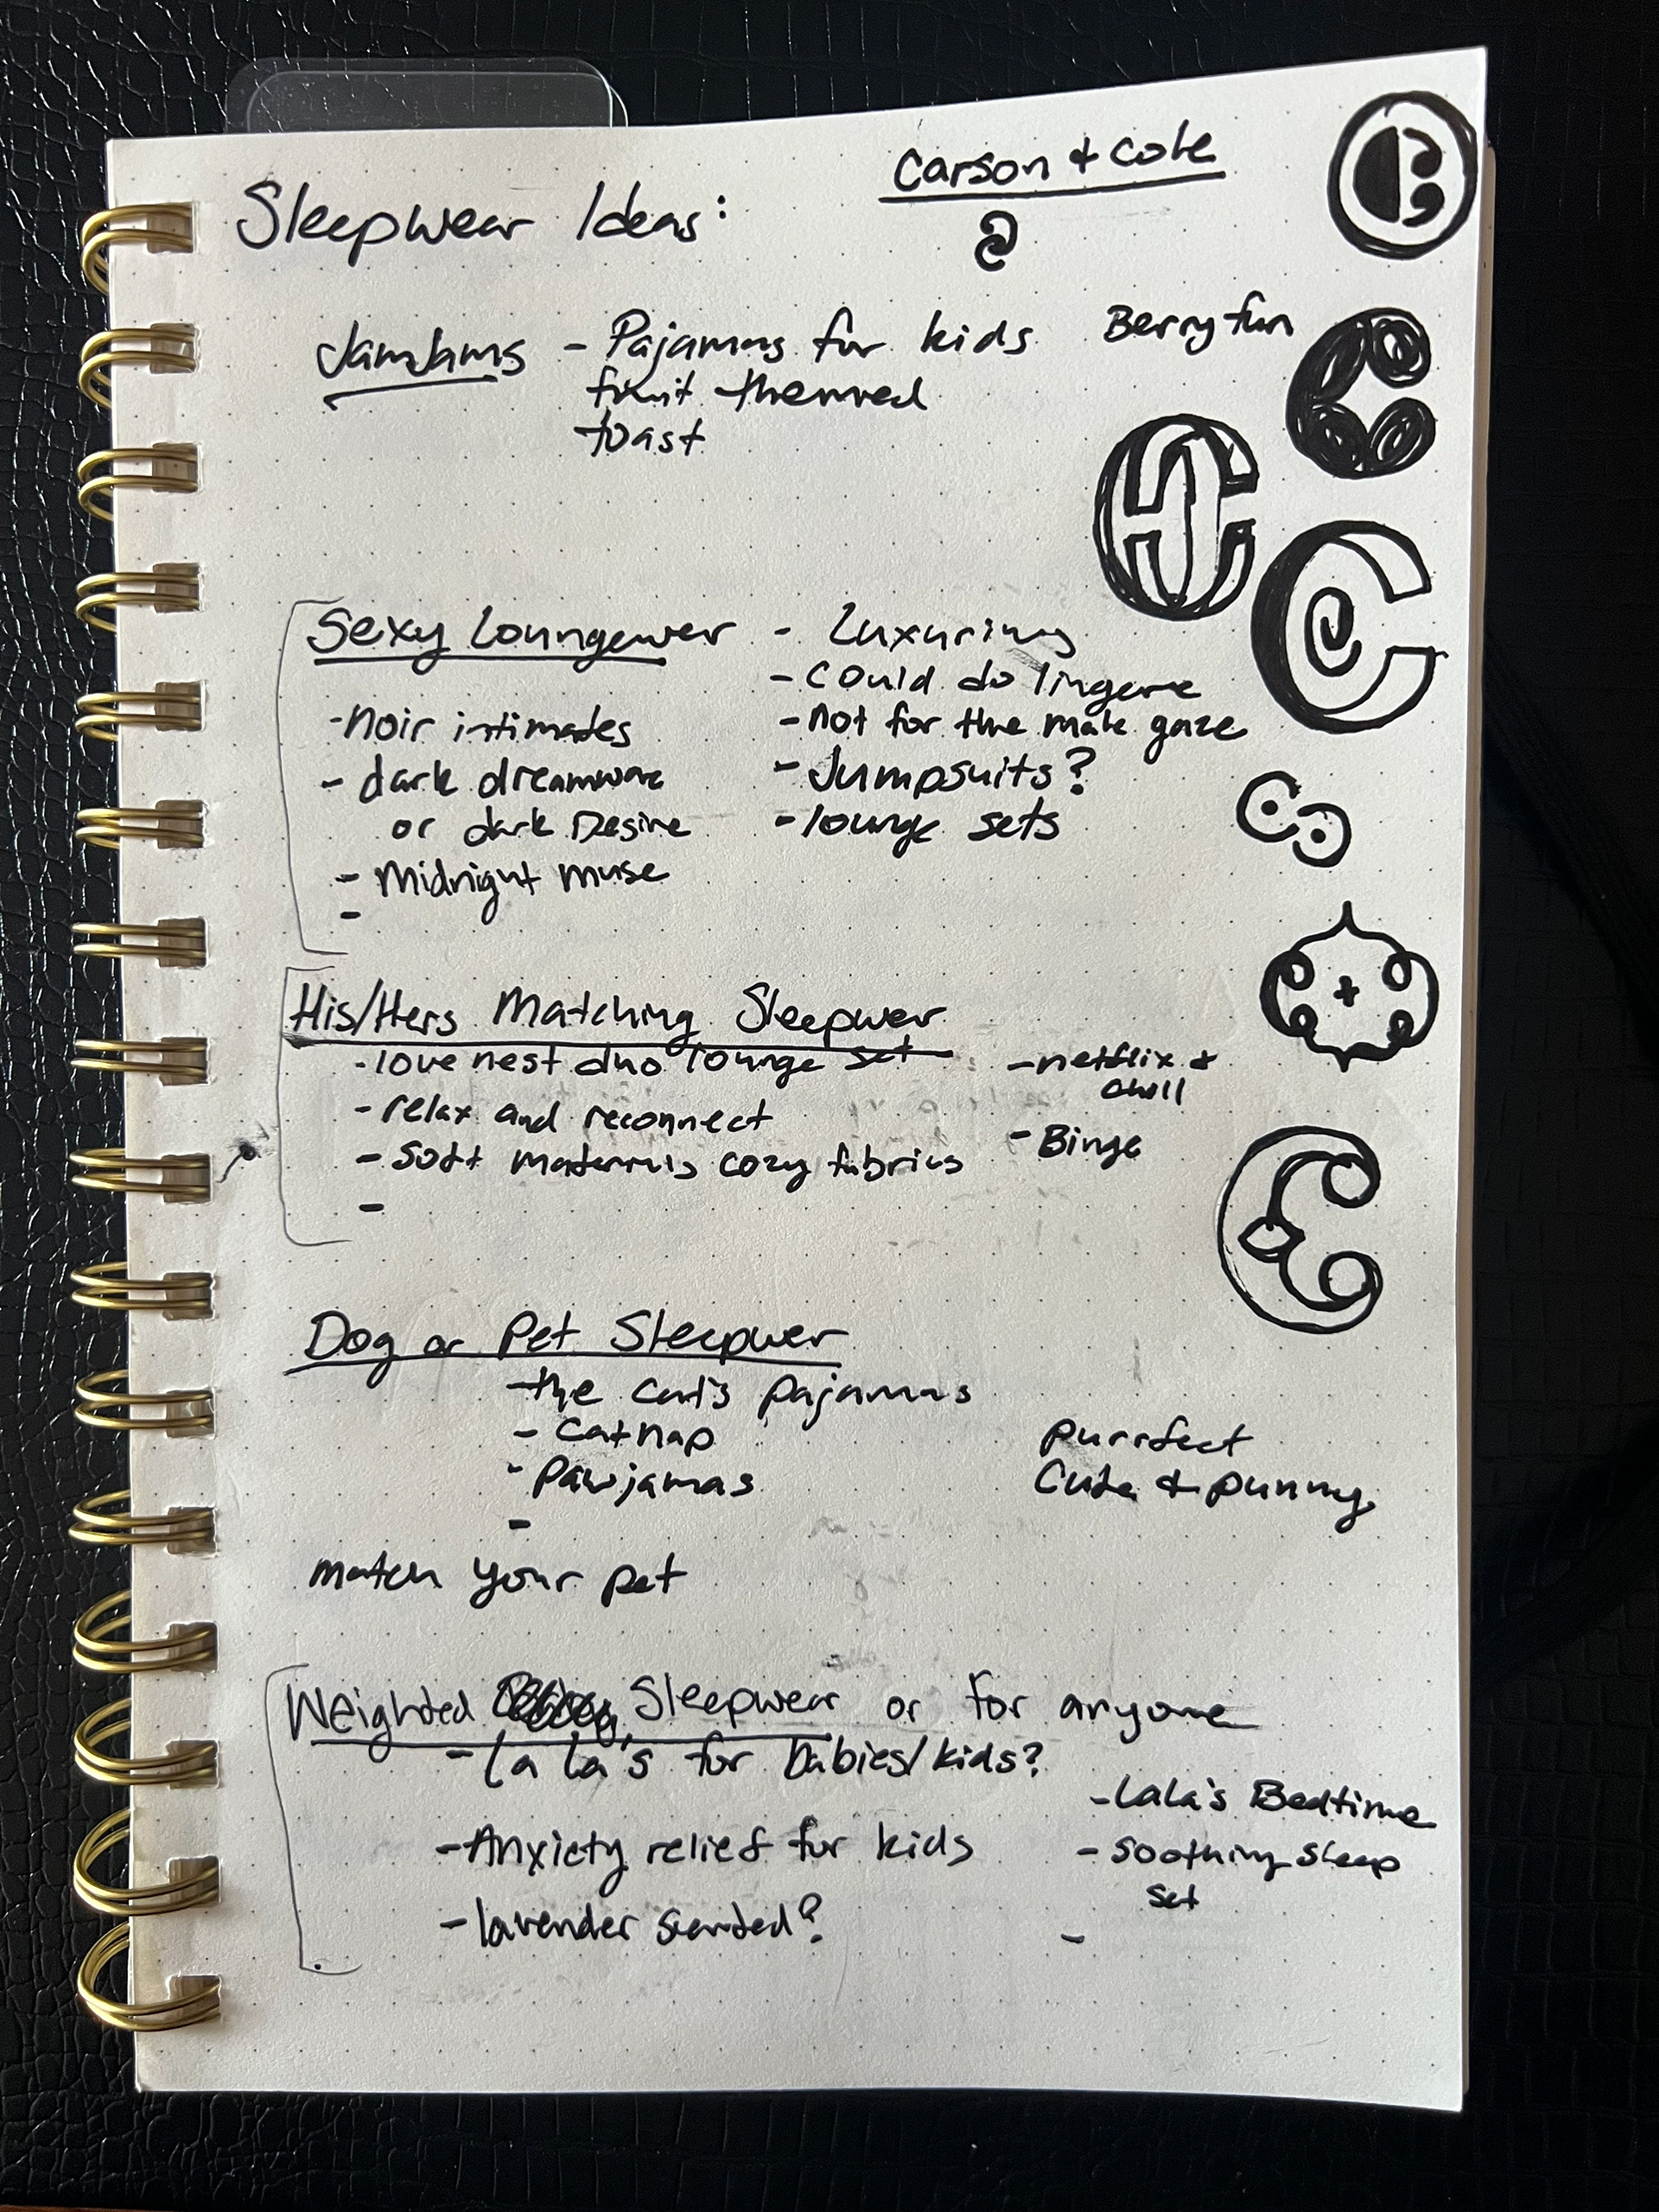 Carson & Cole
Sleepwear Ideas:
JamJams - Pajamas for kids Berry fun
fruit themed
toast
Sexy Loungewer
- noir intimates
- dark dreamware
or dark Desire
- Midnight muse
-
- Luxurious
- Could do lingerie
- not for the male gaze
- Jumpsuits?
- lounge sets
His/Hers Matching Sleepwer
- love nest duo lounge set
- relax and reconnect
- soft materials cozy fabrics
-
- netflix &
chill
- Binge
Dog or Pet Sleepwer
- the cat's pajamas
- Catnap
- Pawjamas
-
purrfect
Cute & punny
match your pet
Weighted Sleepwear or for anyone
- La La's for babies/kids?
- Anxiety relief for kids
- lavender scented?
- LaLa's Bedtime
- Soothing Sleep
Set
-